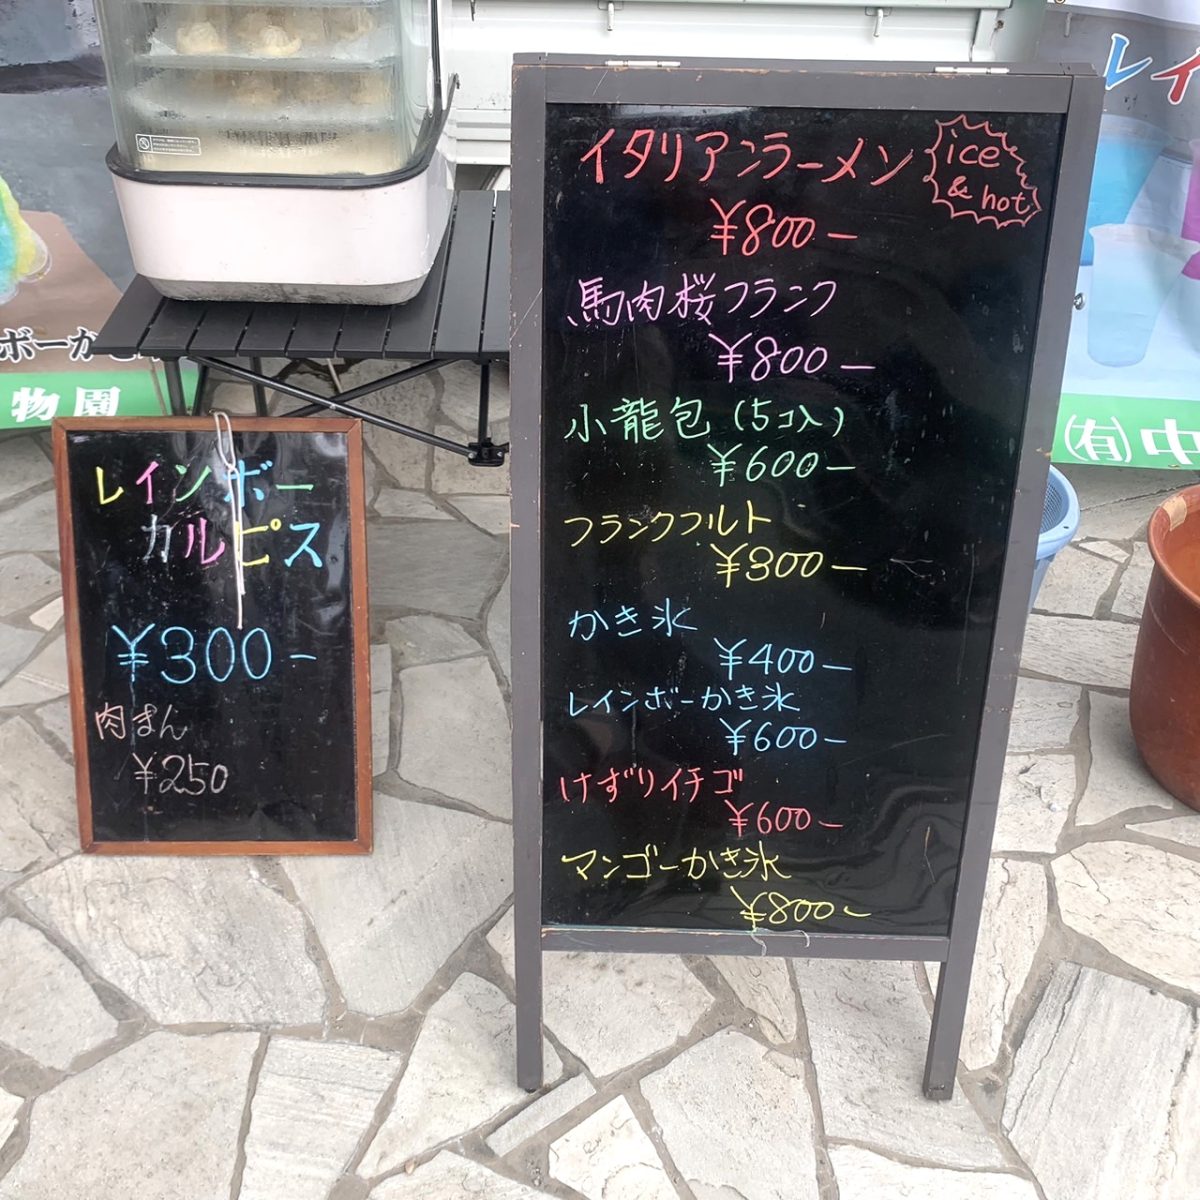 レインボー
カルピス
¥300-
肉まん
¥250
イタリアンラーメン
ice
& hot
¥800-
馬肉桜フランク
¥800-
小龍包(5コ入)
¥600-
フランクフルト
¥300-
かき氷
¥400-
レインボーかき氷
¥600-
けずりイチゴ
¥600-
マンゴーかき氷
¥800-
ボーか
物園
レイ
(有)中